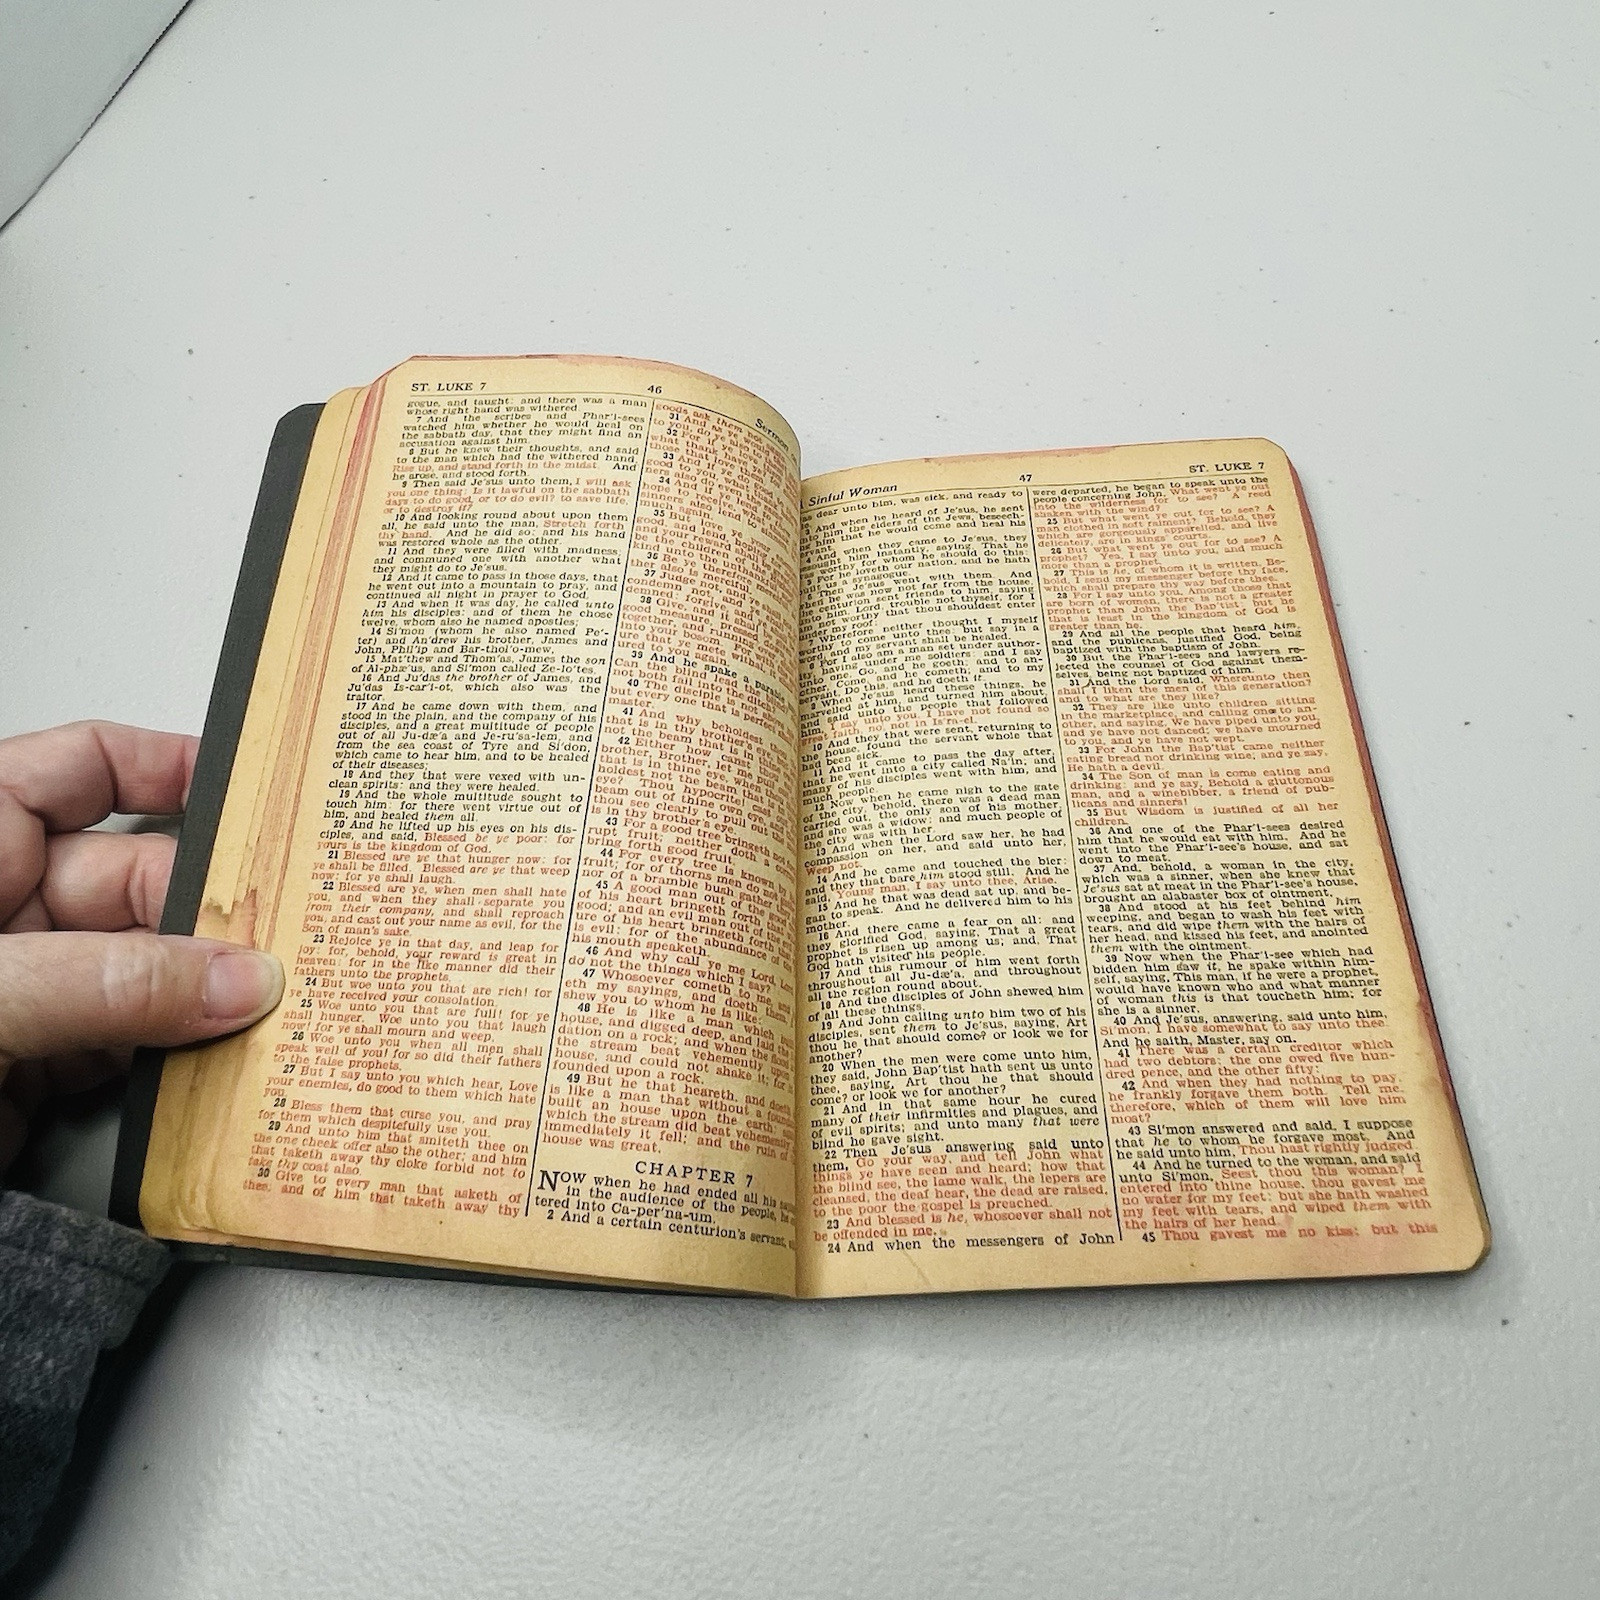 ST. LUKE 7
46
Sermon
gogue, and taught: and there was a man
whose right hand was withered.
7 And the scribes and Phar'i-sees
watched him whether he would heal on
the sabbath day, that they might find an
accusation against him.
8 But he knew their thoughts, and said
to the man which had the withered hand,
Rise up, and stand forth in the midst. And
he arose, and stood forth.
9 Then said Je'sus unto them, I will ask
you one thing: Is it lawful on the sabbath
days to do good, or to do evil? to save life,
or to destroy it?
10 And looking round about upon them
all, he said unto the man, Stretch forth
thy hand. And he did so: and his hand
was restored whole as the other.
11 And they were filled with madness;
and communed one with another what
they might do to Je'sus.
12 And it came to pass in those days, that
he went out into a mountain to pray, and
continued all night in prayer to God.
13 And when it was day, he called unto
him his disciples: and of them he chose
twelve, whom also he named apostles;
14 Si'mon (whom he also named Pe'-
ter) and An'drew his brother, James and
John, Phil'ip and Bar-thol'o-mew,
15 Mat'thew and Thom'as, James the son
of Al-phæ'us, and Si'mon called Ze-lo'tes,
16 And Ju'das the brother of James, and
Ju'das Is-car'i-ot, which also was the
traitor.
17 And he came down with them, and
stood in the plain, and the company of his
disciples, and a great multitude of people
out of all Ju-dæ'a and Je-ru'sa-lem, and
from the sea coast of Tyre and Si'don,
which came to hear him, and to be healed
of their diseases;
18 And they that were vexed with un-
clean spirits: and they were healed.
19 And the whole multitude sought to
touch him: for there went virtue out of
him, and healed them all.
20 And he lifted up his eyes on his dis-
ciples, and said, Blessed be ye poor: for
yours is the kingdom of God.
21 Blessed are ye that hunger now: for
ye shall be filled. Blessed are ye that weep
now: for ye shall laugh.
22 Blessed are ye, when men shall hate
you, and when they shall separate you
from their company, and shall reproach
you, and cast out your name as evil, for the
Son of man's sake.
23 Rejoice ye in that day, and leap for
joy: for, behold, your reward is great in
heaven: for in the like manner did their
fathers unto the prophets.
24 But woe unto you that are rich! for
ye have received your consolation.
25 Woe unto you that are full! for ye
shall hunger. Woe unto you that laugh
now! for ye shall mourn and weep.
26 Woe unto you when all men shall
speak well of you! for so did their fathers
to the false prophets.
27 But I say unto you which hear, Love
your enemies, do good to them which hate
you,
28 Bless them that curse you, and pray
for them which despitefully use you.
29 And unto him that smiteth thee on
the one cheek offer also the other; and him
that taketh away thy cloke forbid not to
take thy coat also.
30 Give to every man that asketh of
thee; and of him that taketh away thy
goods ask them not
31 And as ye would
to you, do ye also
32 For if ye love
what thank have ye?
those that love
33 And if ye do good
good to you, what
ners also do even
34 And if ye lend
hope to receive, what
sinners also lend to
much again.
35 But love ye
good, and lend, hoping
and your reward shall
be the children of the
kind unto the unthankful
36 Be ye therefore
ther also is merciful.
37 Judge not, and ye
condemn not, and ye shall
demned: forgive, and ye shall
38 Give, and it shall be
good measure, pressed
together, and running over
into your bosom. For with
ure that ye mete withal it
ured to you again.
39 And he spake a parable
Can the blind lead the
not both fall into the ditch?
40 The disciple is not
but every one that is perfect
master.
41 And why beholdest thou
that is in thy brother's eye, but
not the beam that is in thine
42 Either how canst thou
brother, Brother, let me pull
that is in thine eye, when thou
holdest not the beam that
eye? Thou hypocrite,
beam out of thine own eye,
thou see clearly to pull out the
is in thy brother's eye.
43 For a good tree bringeth not
rupt fruit; neither doth a
bring forth good fruit.
44 For every tree is known by
fruit: for of thorns men do not
nor of a bramble bush gather
45 A good man out of the good
of his heart bringeth forth that
good; and an evil man out of the
ure of his heart bringeth forth
is evil: for of the abundance of
his mouth speaketh.
46 And why call ye me, Lord, Lord,
do not the things which I say?
47 Whosoever cometh to me, and
eth my sayings, and doeth them,
shew you to whom he is like:
48 He is like a man which
house, and digged deep, and laid the
dation on a rock: and when the flood
the stream beat vehemently upon
house, and could not shake it: for
founded upon a rock.
49 But he that heareth, and doeth
is like a man that without a
built an house upon the earth;
which the stream did beat vehemently
immediately it fell; and the ruin of
house was great.
CHAPTER 7
NOW when he had ended all his
in the audience of the people, he
tered into Ca-per'na-um.
2 And a certain centurion's servant,
Sinful Woman
47
ST. LUKE 7
was dear unto him, was sick, and ready to
And when he heard of Je'sus, he sent
him the elders of the Jews, beseech-
him that he would come and heal his
servant.
And when they came to Je'sus, they
besought him instantly, saying, That he
was worthy for whom he should do this:
For he loveth our nation, and he hath
us a synagogue.
6 Then Je'sus went with them. And
when he was now not far from the house,
the centurion sent friends to him, saying
unto him, Lord, trouble not thyself: for I
am not worthy that thou shouldest enter
under my roof:
7 Wherefore neither thought I myself
worthy to come unto thee: but say in a
word, and my servant shall be healed.
8 For I also am a man set under author-
ity, having under me soldiers; and I say
unto one, Go, and he goeth; and to an-
other, Come, and he cometh; and to my
servant, Do this, and he doeth it.
9 When Je'sus heard these things, he
marvelled at him, and turned him about,
and said unto the people that followed
him, I say unto you, I have not found so
great faith, no, not in Is'ra-el.
10 And they that were sent, returning to
the house, found the servant whole that
had been sick.
11 And it came to pass the day after,
that he went into a city called Na'in; and
many of his disciples went with him, and
much people.
12 Now when he came nigh to the gate
of the city, behold, there was a dead man
carried out, the only son of his mother,
and she was a widow: and much people of
the city was with her.
13 And when the Lord saw her, he had
compassion on her, and said unto her,
Weep not.
14 And he came and touched the bier:
and they that bare him stood still. And he
said, Young man, I say unto thee, Arise.
15 And he that was dead sat up, and be-
gan to speak. And he delivered him to his
mother.
16 And there came a fear on all: and
they glorified God, saying, That a great
prophet is risen up among us; and, That
God hath visited his people.
17 And this rumour of him went forth
throughout all Ju-dæ'a, and throughout
all the region round about.
18 And the disciples of John shewed him
of all these things.
19 And John calling unto him two of his
disciples, sent them to Je'sus, saying, Art
thou he that should come? or look we for
another?
20 When the men were come unto him,
they said, John Bap'tist hath sent us unto
thee, saying, Art thou he that should
come? or look we for another?
21 And in that same hour he cured
many of their infirmities and plagues, and
of evil spirits; and unto many that were
blind he gave sight.
22 Then Je'sus answering said unto
them, Go your way, and tell John what
things ye have seen and heard; how that
the blind see, the lame walk, the lepers are
cleansed, the deaf hear, the dead are raised,
to the poor the gospel is preached.
23 And blessed is he, whosoever shall not
be offended in me.
24 And when the messengers of John
were departed, he began to speak unto the
people concerning John, What went ye out
into the wilderness for to see? A reed
shaken with the wind?
25 But what went ye out for to see? A
man clothed in soft raiment? Behold, they
which are gorgeously apparelled, and live
delicately, are in kings' courts.
26 But what went ye out for to see? A
prophet? Yea, I say unto you, and much
more than a prophet.
27 This is he, of whom it is written, Be-
hold, I send my messenger before thy face,
which shall prepare thy way before thee.
28 For I say unto you, Among those that
are born of women, there is not a greater
prophet than John the Bap'tist: but he
that is least in the kingdom of God is
greater than he.
29 And all the people that heard him,
and the publicans, justified God, being
baptized with the baptism of John.
30 But the Phar'i-sees and lawyers re-
jected the counsel of God against them-
selves, being not baptized of him.
31 And the Lord said, Whereunto then
shall I liken the men of this generation?
and to what are they like?
32 They are like unto children sitting
in the marketplace, and calling one to an-
other, and saying, We have piped unto you,
and ye have not danced; we have mourned
to you, and ye have not wept.
33 For John the Bap'tist came neither
eating bread nor drinking wine; and ye say,
He hath a devil.
34 The Son of man is come eating and
drinking; and ye say, Behold a gluttonous
man, and a winebibber, a friend of pub-
licans and sinners!
35 But Wisdom is justified of all her
children.
36 And one of the Phar'i-sees desired
him that he would eat with him. And he
went into the Phar'i-see's house, and sat
down to meat.
37 And, behold, a woman in the city,
which was a sinner, when she knew that
Je'sus sat at meat in the Phar'i-see's house,
brought an alabaster box of ointment,
38 And stood at his feet behind him
weeping, and began to wash his feet with
tears, and did wipe them with the hairs of
her head, and kissed his feet, and anointed
them with the ointment.
39 Now when the Phar'i-see which had
bidden him saw it, he spake within him-
self, saying, This man, if he were a prophet,
would have known who and what manner
of woman this is that toucheth him; for
she is a sinner.
40 And Je'sus, answering, said unto him,
Si'mon, I have somewhat to say unto thee.
And he saith, Master, say on.
41 There was a certain creditor which
had two debtors: the one owed five hun-
dred pence, and the other fifty:
42 And when they had nothing to pay,
he frankly forgave them both. Tell me
therefore, which of them will love him
most?
43 Si'mon answered and said, I suppose
that he to whom he forgave most. And
he said unto him, Thou hast rightly judged.
44 And he turned to the woman, and said
unto Si'mon, Seest thou this woman? I
entered into thine house, thou gavest me
no water for my feet: but she hath washed
my feet with tears, and wiped them with
the hairs of her head.
45 Thou gavest me no kiss: but this